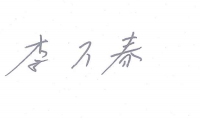 李万春